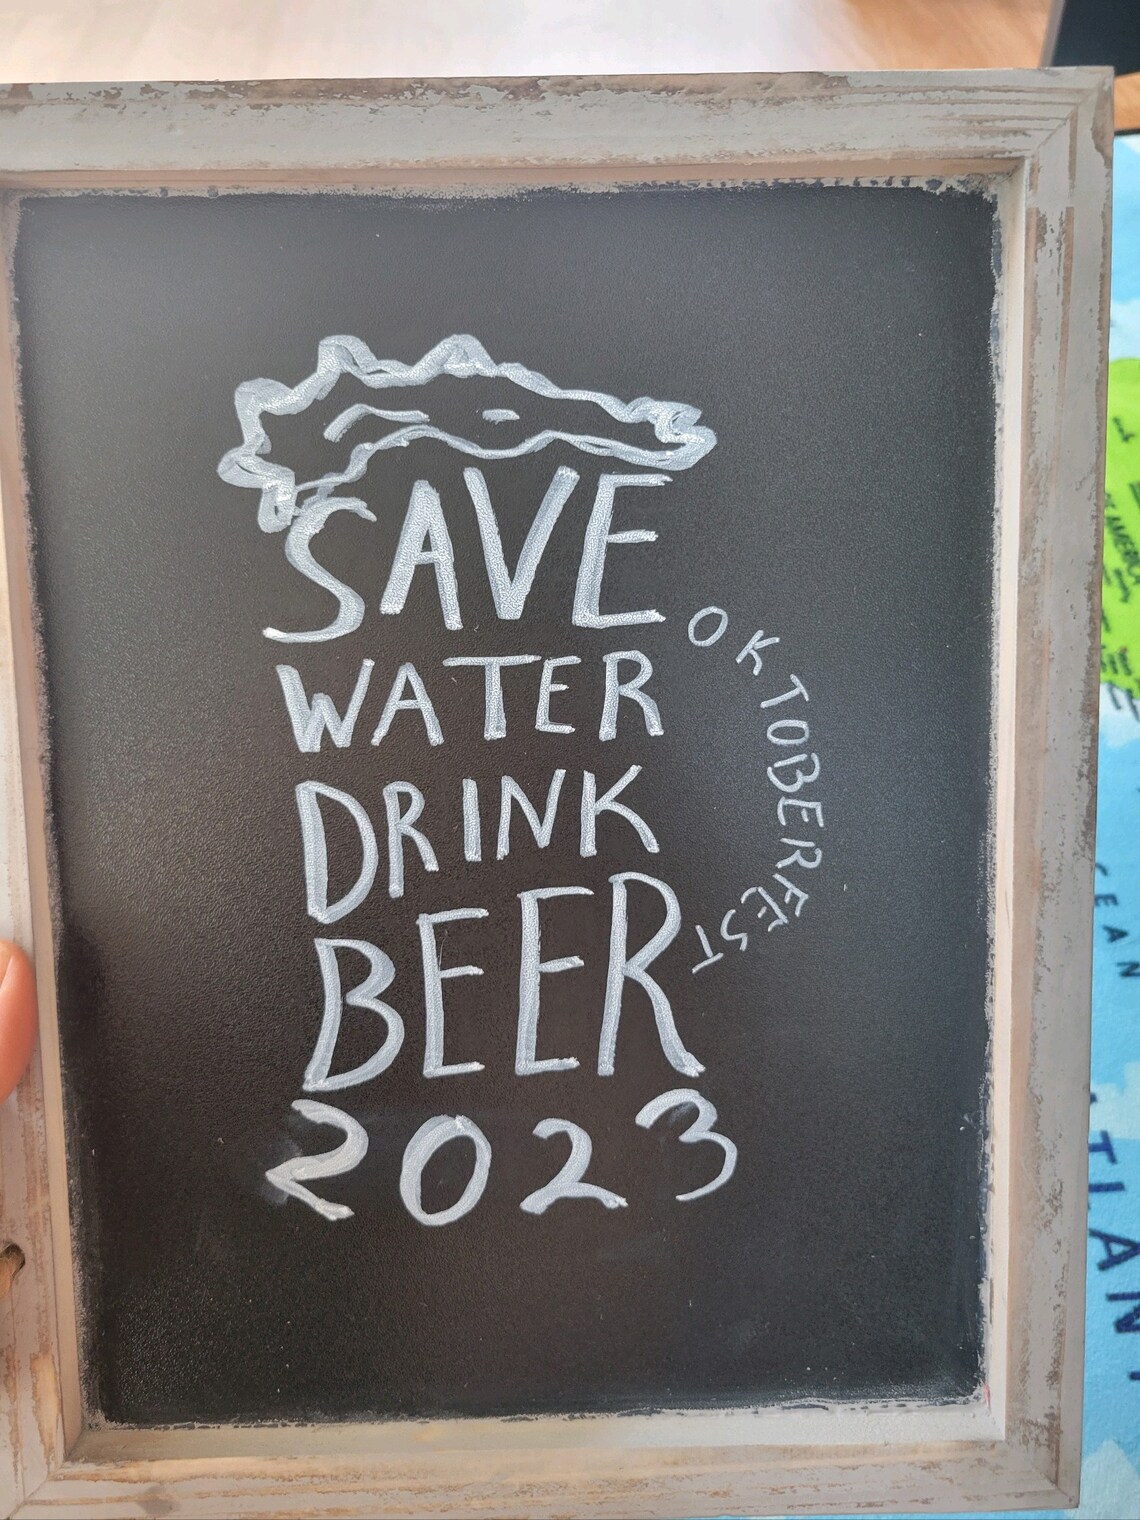 SAVE
WATER
DRINK
BEER
2023
OKTOBERFEST
CEAN